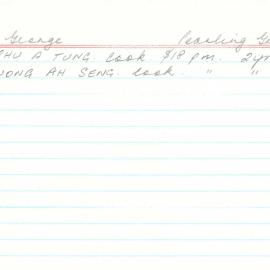 George Pearling
PHU A TUNG. Cook. $18 p.m. 2 yr
WONG AH SENG. Cook. " "